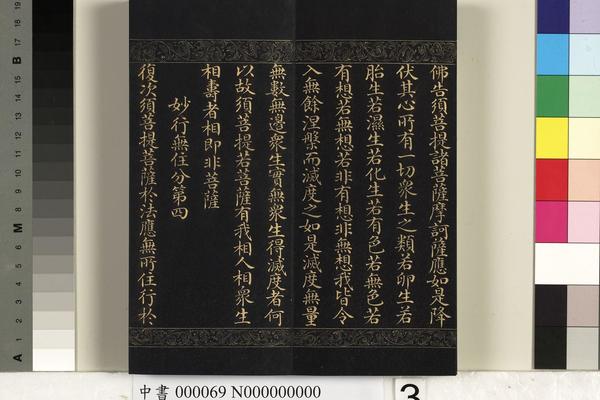 佛告須菩提諸菩薩摩訶薩應如是降
伏其心所有一切眾生之類若卵生若
胎生若濕生若化生若有色若無色若
有想若無想若非有想非無想我皆令
入無餘涅槃而滅度之如是滅度無量
無數無邊眾生實無眾生得滅度者何
以故須菩提若菩薩有我相人相眾生
相壽者相即非菩薩
妙行無住分第四
復次須菩提菩薩於法應無所住行於
中書 000069 N000000000
3
A 1 2 3 4 5 6 7 M 8 9 10 11 12 13 14 15 B 17 18 19